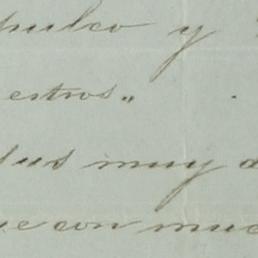 pulco y
estros„
dus muy a
ue con muc